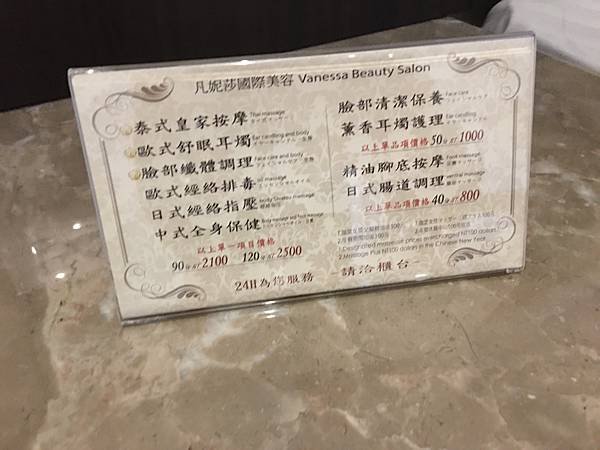 凡妮莎國際美容 Vanessa Beauty Salon
泰式皇家按摩 Thai massage
歐式舒眠耳燭 Ear candling and body
臉部纖體調理 Face care and body
歐式經絡排毒 oil massage
日式經絡指壓 body Shiatsu massage
中式全身保健
以上單一項目價格
90分NT2100 120分NT2500
臉部清潔保養 Face care
薰香耳燭護理 Ear candling
以上單品項價格50分NT1000
精油腳底按摩 Foot massage
日式腸道調理
以上單品項價格40分NT800
1.Designated masseuse prices surcharged NT100 dollars
2.Massage Plus NT100 dollars in the Chinese New Year
24H為您服務 -請洽櫃台-